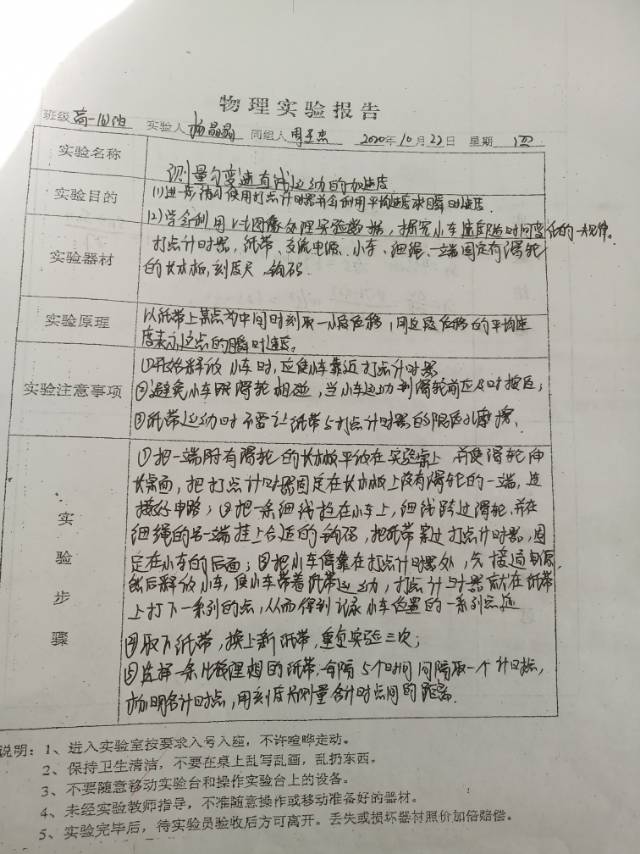 物理实验报告
班级 高一 实验人 杨晶晶 同组人 周 杰 2020年10月22日 星期 四
实验名称 测量匀变速直线运动的加速度
实验目的 (1)进一步练习使用打点计时器并会利用平均速度求瞬时速度
(2)学会利用v-t图像处理实验数据,探究小车速度随时间变化的一规律。
实验器材 打点计时器,纸带、交流电源、小车、细绳、一端固定有滑轮
的长木板,刻度尺、钩码.
实验原理 以纸带上某点为中间时刻取一小段位移,用这段位移的平均速
度表示这点的瞬时速度。
实验注意事项 ①开始释放小车时,应使小车靠近打点计时器
②避免小车跟滑轮相碰,当小车运动到滑轮前应及时按住;
③纸带运动时不要让纸带与打点计时器的限位孔摩擦.
实验步骤 ①把一端附有滑轮的长木板平放在实验桌上 并使滑轮伸
出桌面,把打点计时器固定在长木板上没有滑轮的一端,连
接好电路;②把一条细线拴在小车上,细线跨过滑轮,并在
细绳的另一端挂上合适的钩码,把纸带穿过打点计时器,固
定在小车的后面;③把小车停靠在打点计时器处,先接通电源
然后释放小车,使小车带着纸带运动,打点计时器就在纸带
上打下一系列的点,从而得到记录小车位置的一系列点迹
④取下纸带,换上新纸带,重复实验三次;
⑤选择一条比较理想的纸带,每隔5个时间间隔取一个计时点,
标明各计时点,用刻度尺测量各计时点间的距离
说明:1、进入实验室按要求入号入座,不许喧哗走动。
2、保持卫生清洁,不要在桌上乱写乱画,乱扔东西。
3、不要随意移动实验台和操作实验台上的设备。
4、未经实验教师指导,不准随意操作或移动准备好的器材。
5、实验完毕后,待实验员验收后方可离开。丢失或损坏器材照价加倍赔偿。